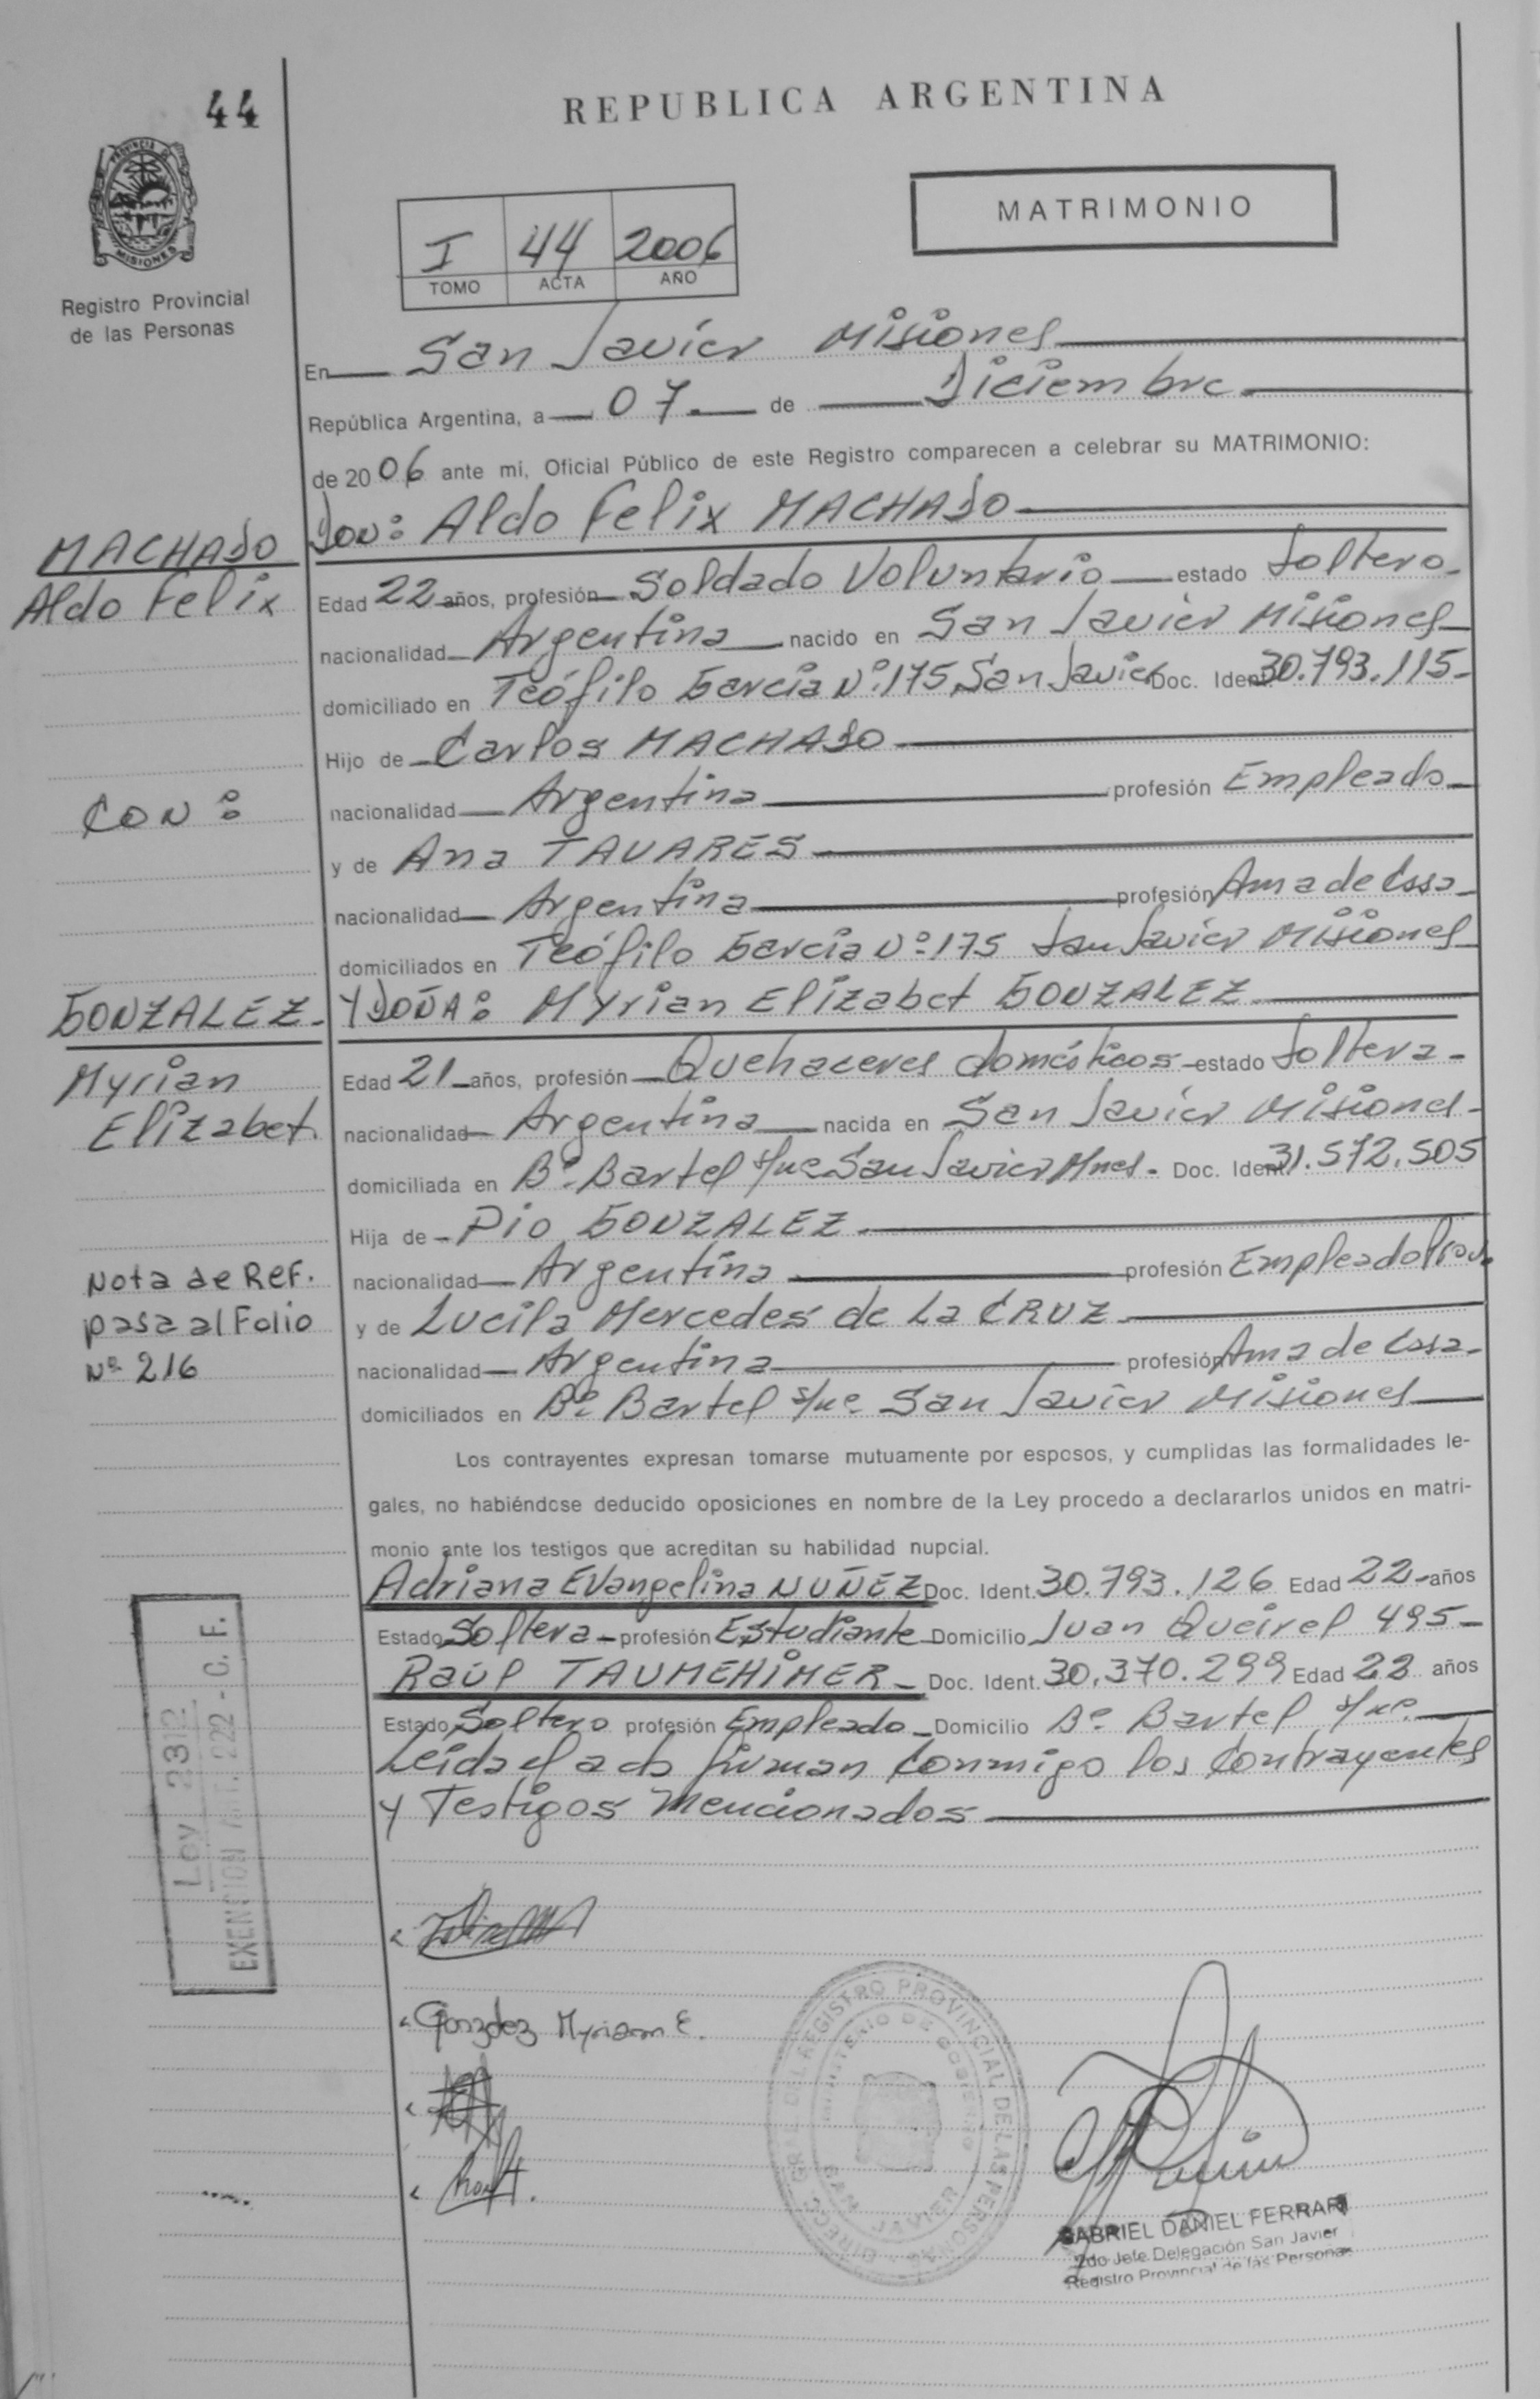 44
REPUBLICA ARGENTINA
PROVINCIA DE
MISIONES
Registro Provincial
de las Personas
MATRIMONIO
I 44 2006
TOMO ACTA AÑO
En San Javier Misiones
República Argentina, a 07 de Diciembre
de 2006 ante mi, Oficial Público de este Registro comparecen a celebrar su MATRIMONIO:
DON: Aldo Felix MACHADO
MACHADO
Aldo Felix
Edad 22 años, profesión Soldado Voluntario estado Soltero
nacionalidad Argentina nacido en San Javier Misiones
domiciliado en Teófilo García Nº 175 San Javier Doc. Ident. 30.793.115
Hijo de Carlos MACHADO
nacionalidad Argentina profesión Empleado
CON:
y de Ana TAVARES
nacionalidad Argentina profesión Ama de Casa
domiciliados en Teófilo García Nº 175 San Javier Misiones
GONZALEZ
Y DOÑA: Myrian Elizabet GONZALEZ
Myrian
Elizabet
Edad 21 años, profesión Quehaceres domésticos estado Soltera
nacionalidad Argentina nacida en San Javier Misiones
domiciliada en Bº Bartel s/nº San Javier Mnes. Doc. Ident. 31.572.505
Hija de Pio GONZALEZ
nacionalidad Argentina profesión Empleado Prov.
y de Lucila Mercedes de La CRUZ
Nota de Ref.
pasa al Folio
Nº 216
nacionalidad Argentina profesión Ama de Casa
domiciliados en Bº Bartel s/nº San Javier Misiones
Los contrayentes expresan tomarse mutuamente por esposos, y cumplidas las formalidades le-
gales, no habiéndose deducido oposiciones en nombre de la Ley procedo a declararlos unidos en matri-
monio ante los testigos que acreditan su habilidad nupcial.
Adriana Evangelina NUÑEZ Doc. Ident. 30.793.126 Edad 22 años
Estado Soltera profesión Estudiante Domicilio Juan Queirel 495
Raúl TAUMEHIMER Doc. Ident. 30.370.299 Edad 22 años
Estado Soltero profesión Empleado Domicilio Bº Bartel s/nº
Leída el acta firman conmigo los Contrayentes
y Testigos mencionados
Ley 2312
EXENCION ART. 222 - C. F.
Gonzalez Myriam E.
DIRECC. GRAL. DEL REGISTRO PROVINCIAL DE LAS PERSONAS
MINISTERIO DE GOBIERNO
SAN JAVIER
GABRIEL DANIEL FERRARI
2do Jefe Delegación San Javier
Registro Provincial de las Personas